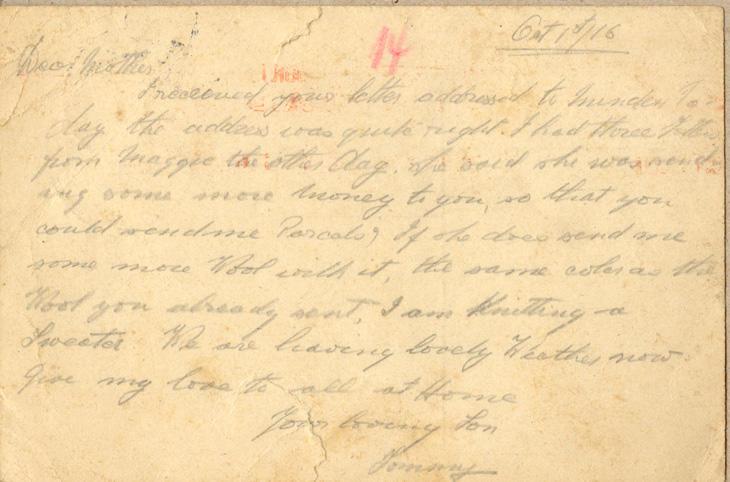 Oct 1st/16
14
Dear Mother
I received your letter addressed to Minden To-
day the address was quite right. I had three letters
from Maggie the other day, she said she was send
ing some more money to you, so that you
could send me Parcels, If she does send me
some more Wool with it, the same color as the
Wool you already sent, I am Knitting a
Sweater We are having lovely Weather now.
Give my love to all at Home
Your loving Son
Tommy